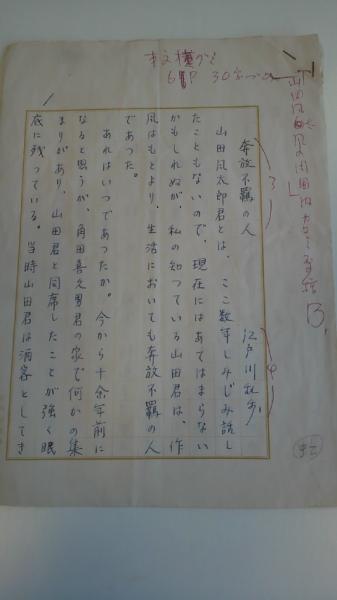 本文横グミ
6号P 30字づめ
奔放不羈の人
江戸川乱歩
山田風太郎君とは、ここ数年しみじみ話し
たこともないので、現在にはあてはまらない
かもしれぬが、私の知つている山田君は、作
風はもとより、生活においても奔放不羈の人
であつた。
あれはいつであつたか。今から十余年前に
なると思うが、角田喜久男君の家で何かの集
まりがあり、山田君と同席したことが強く眼
底に残つている。当時山田君は酒客としてき